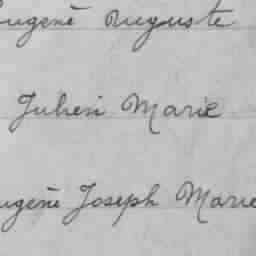 Eugène Auguste
Julien Marie
Eugène Joseph Marie